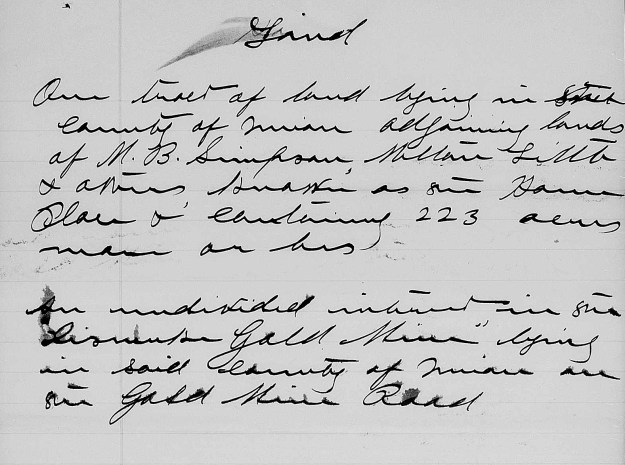 Land
One tract of land lying in
County of Union adjoining lands
of M. B. Simpson Milton Little
& others known as the Home
Place & containing 223 acres
more or less
An undivided interest in the
Gold Mine" lying
in said County of Union on
the Gold Mine Road